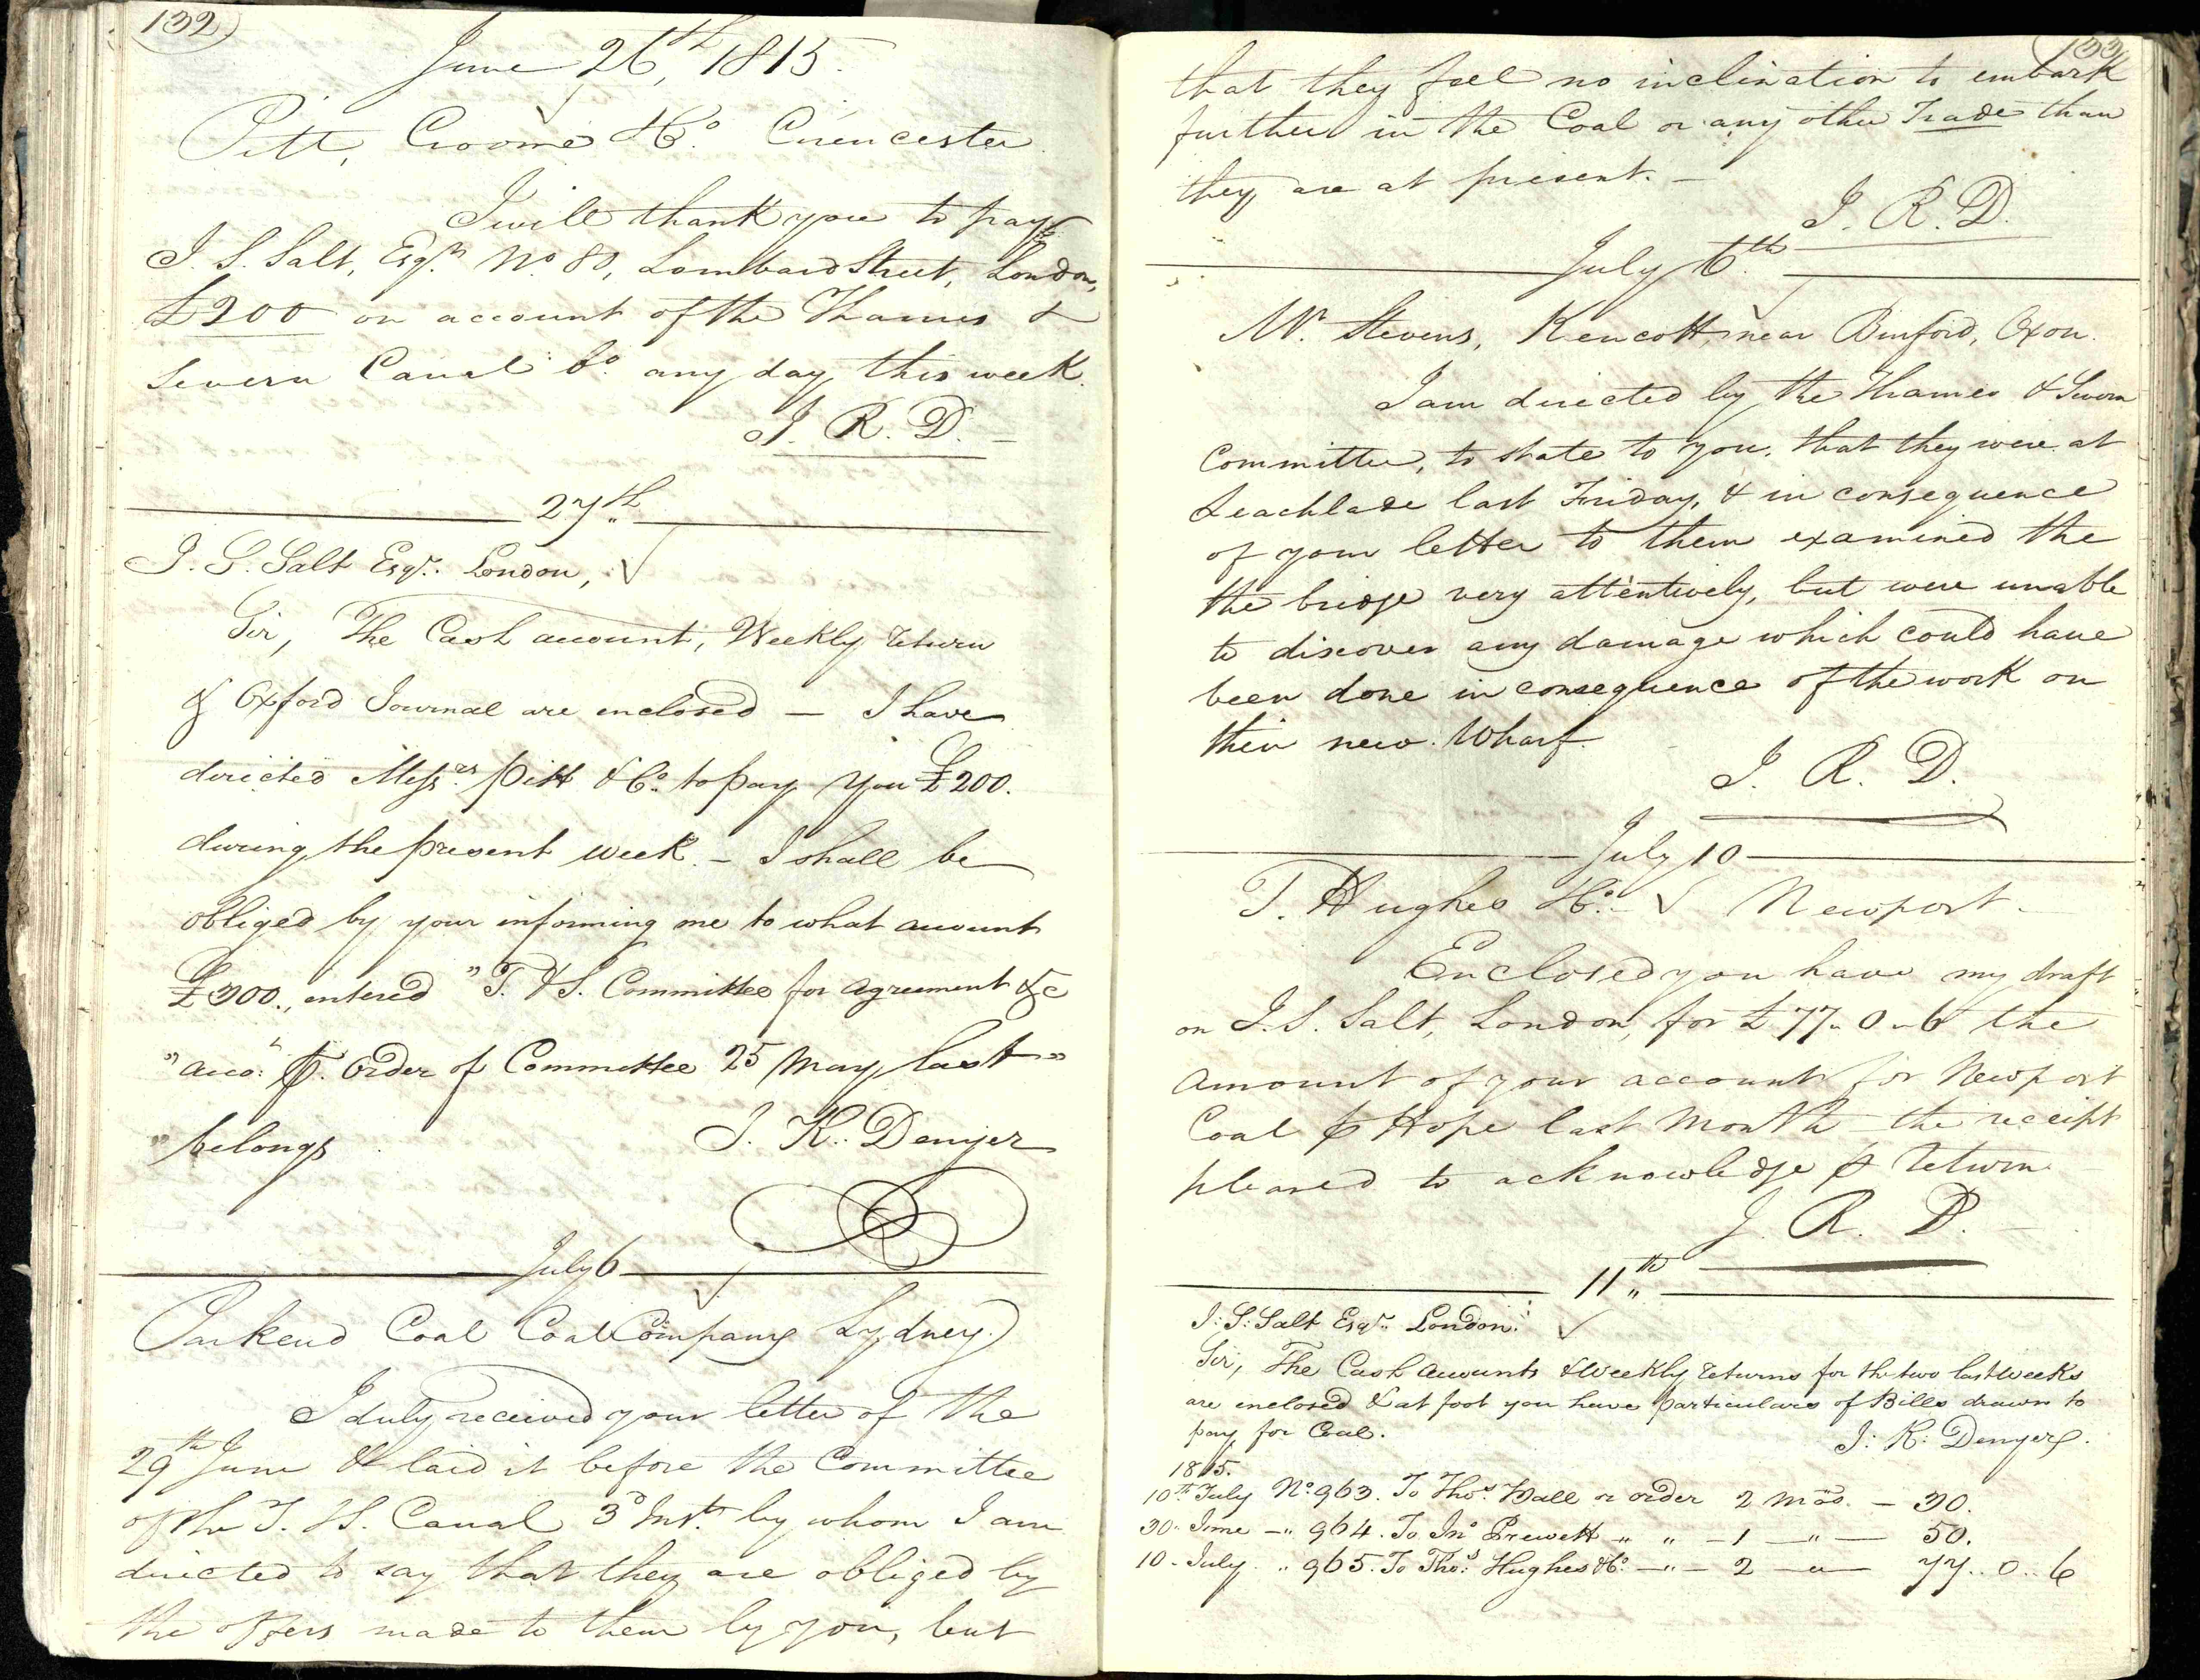 132
June 26th, 1815.
Pitt, Croome & Co. Cirencester
I will thank you to pay
J. S. Salt, Esqr. No. 80, Lombard Street, London,
£200 on account of the Thames &
Severn Canal Co. any day this week.
J. R. D. —
27th
J. S. Salt Esqr. London,
Sir, The Cash account, Weekly return
& Oxford Journal are enclosed — I have
directed Messrs. Pitt & Co. to pay you £200.
during the present week. — I shall be
obliged by your informing me to what account
£300., entered "T. & S. Committee for agreement &c
"acco: p. Order of Committee 25 May last"
"belongs
J. R. Denyer
July 6
Parkend Coal Coal Company Lydney
I duly received your letter of the
29th June & laid it before the Committee
of the T. & S. Canal 3d Inst. by whom I am
directed to say that they are obliged by
the offers made to them by you, but
133
that they feel no inclination to embark
further in the Coal or any other Trade than
they are at present. —
J. R. D.
July 6th
Mr. Stevens, Kencott, near Burford, Oxon.
I am directed by the Thames & Severn
Committee, to state to you, that they were at
Leachlade last Friday, & in consequence
of your letter to them examined the
the bridge very attentively, but were unable
to discover any damage which could have
been done in consequence of the work on
their new Wharf.
J. R. D.
July 10
T. Hughes & Co. Newport.
Enclosed you have my draft
on J. S. Salt, London, for £77 „ 0 „ 6 the
amount of your account for Newport
Coal p Hope last Month — the receipt
pleased to acknowledge p return
J. R. D. —
11th
J: S: Salt Esqr. London.
Sir, The Cash accounts & Weekly returns for the two last weeks
are enclosed & at foot you have particulars of Bills drawn to
pay for Coal.
J: R: Denyer.
1815.
10th July No. 963. To Thos. Hall or order 2 mos. — 30.
30 June — „ 964. To Jno. Prewett „ „ — 1 — „ — 50.
10 — July „ 965. To Thos. Hughes & Co. — „ — 2 — „ — 77 .. 0 .. 6